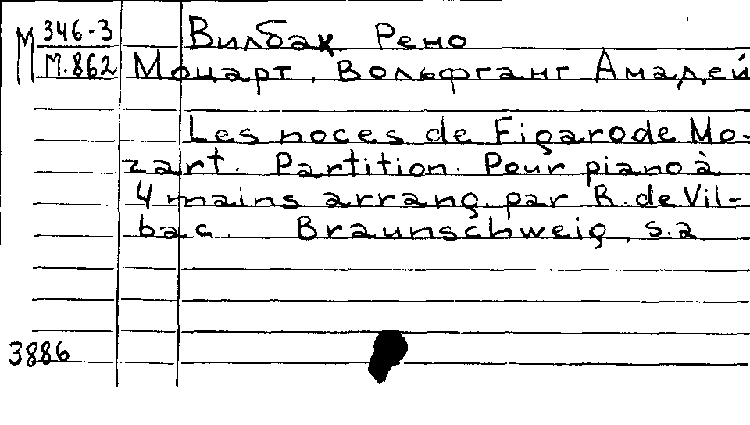 М 346-3 Вилбак Рено
М.862 Моцарт, Вольфганг Амадей
Les noces de Figaro de Mo-
zart. Partition. Pour piano à
4 mains arrang. par R. de Vil-
bac. Braunschweig, s.a
3886